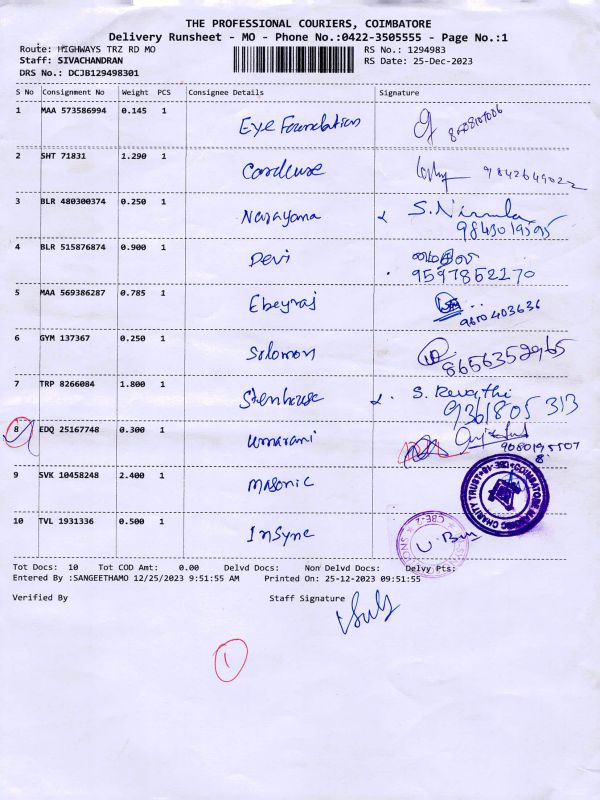 THE PROFESSIONAL COURIERS, COIMBATORE
Delivery Runsheet - MO - Phone No.:0422-3505555 - Page No.:1
Route: HIGHWAYS TRZ RD MO RS No.: 1294983
Staff: SIVACHANDRAN RS Date: 25-Dec-2023
DRS No.: DCJB129498301
S No Consignment No Weight PCS Consignee Details Signature
1 MAA 573586994 0.145 1 Eye Foundation
2 SHT 71831 1.290 1 9842649022
3 BLR 480300374 0.250 1 Narayana S. Nirmala
9843019595
4 BLR 515876874 0.900 1 Devi
9597852170
5 MAA 569386287 0.785 1 Ebeyraj
9600403636
6 GYM 137367 0.250 1 Solomon 8656352965
7 TRP 8266084 1.800 1 Stenhouse S. Revathi
9361805313
8 EDQ 25167748 0.300 1 Umarani
9080195507
9 SVK 10458248 2.400 1 Masonic
COIMBATORE MASONIC CHARITY TRUST
10 TVL 1931336 0.500 1 Insync
CBE-2
Tot Docs: 10 Tot COD Amt: 0.00 Delvd Docs: Non Delvd Docs: Delvy Pts:
Entered By :SANGEETHAMO 12/25/2023 9:51:55 AM Printed On: 25-12-2023 09:51:55
Verified By Staff Signature
1